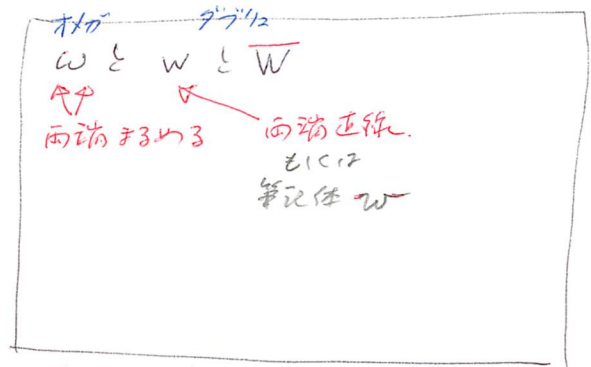 オメガ ダブリュ
ω と w と W
両端まるめる
両端直線
もしくは
筆記体 w